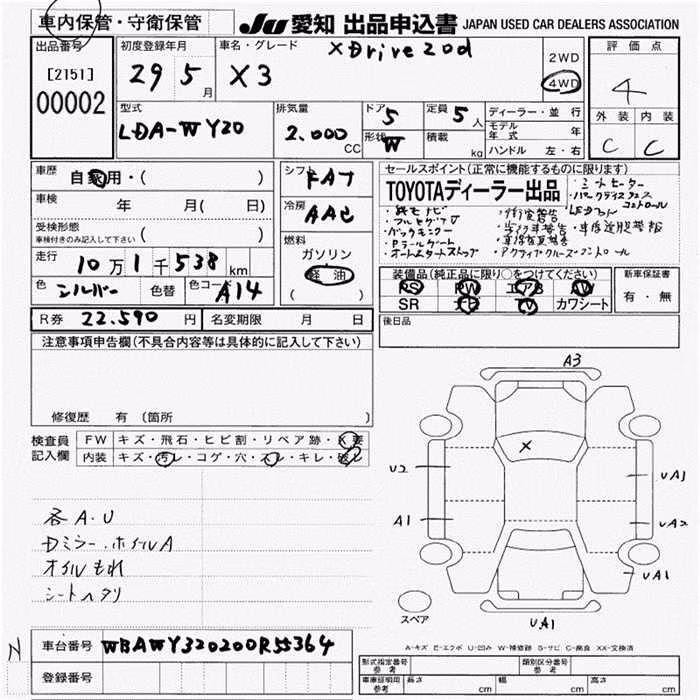 車内保管・守衛保管
JU 愛知 出品申込書 JAPAN USED CAR DEALERS ASSOCIATION
出品番号
[2151]
00002
初度登録年月
29 5 月
車名・グレード
X3 XDrive20d
2WD
4WD
評価点
4
外装 内装
C C
型式
LDA-WY20
排気量
2.000 CC
ドア 5
形状 W
定員 5 人
積載 kg
ディーラー・並行
モデル年式 年
ハンドル 左・右
車歴
自家用・( )
車検
年 月( 日)
受検形態
車検付きのみ記入して下さい ( )
走行
10万1千538 km
色 シルバー 色替 色コード A14
シフト FAT
冷房 AAC
燃料
ガソリン
軽油
( )
セールスポイント(正常に機能するものに限ります)
TOYOTAディーラー出品
・シートヒーター
・純正ナビ
・フルセグTV
・バックモニター
・Pテールゲート
・オートスタートストップ
・アクティブクルーズコントロール
装備品(純正品に限り○をつけてください)
PS PW エアB AW
SR ナビ TV カワシート
新車保証書
有・無
R券 22.590 円 名変期限 月 日
後日品
注意事項申告欄(不具合内容等は具体的に記入して下さい)
修復歴 有 (箇所
検査員記入欄
FW キズ・飛石・ヒビ割・リペア跡・X要
内装 キズ・汚レ・コゲ・穴・スレ・キレ・破レ
各A・U
Dミラー・ホイルA
オイルもれ
シートヘタリ
A3
X
U2
UA1
A1
UA2
UA1
UA1
スペア
A-キズ E-エクボ U-凹み W-補修跡 S-サビ C-腐食 XX-交換済
N
車台番号 WBAWY320200R55364
登録番号
型式指定番号 参考
類別区分番号 参考
車庫証明用 参考 長さ cm 幅 cm 高さ cm